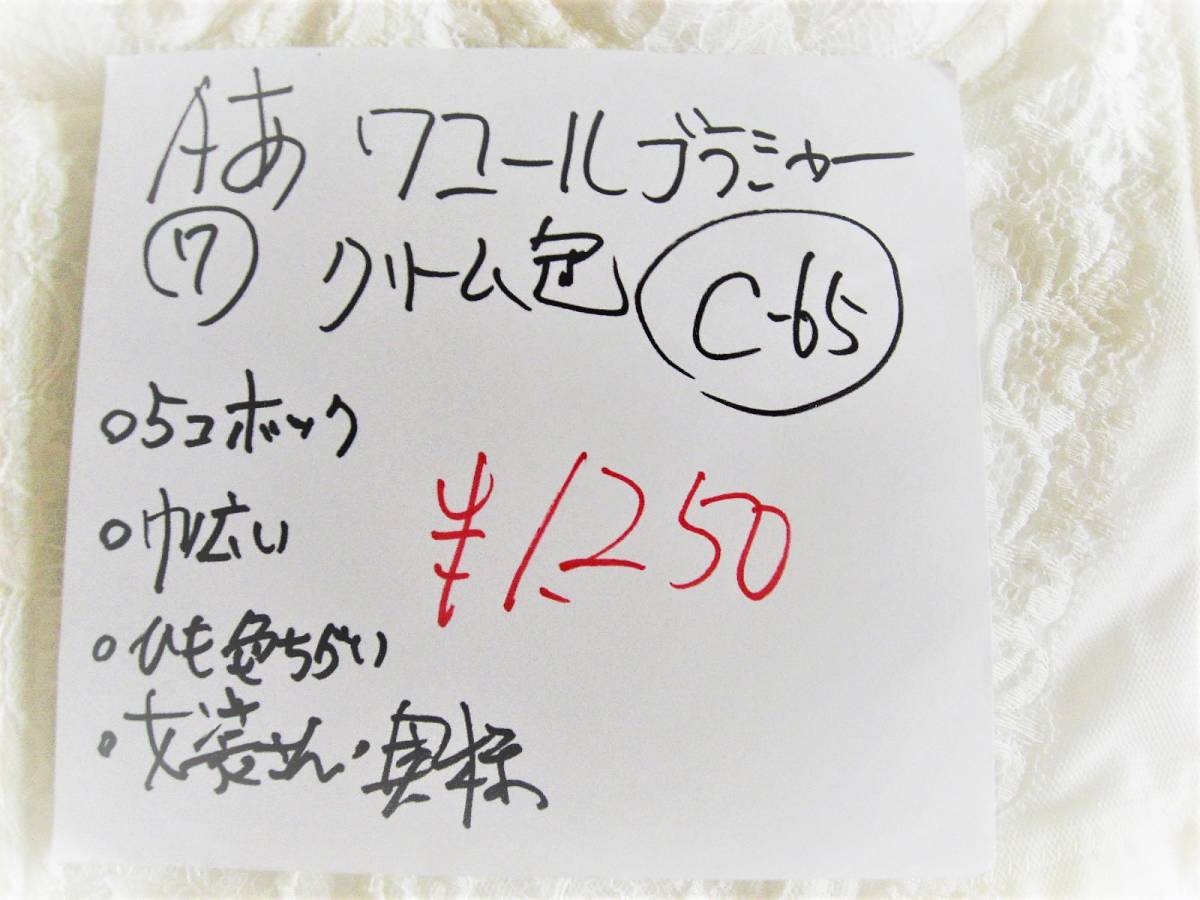 Aあ ワコールブラジャー
⑦ クリーム色 C-65
○5コホック
○巾広い
○ひも色ちがい
○女装さん・奥様
¥1,250